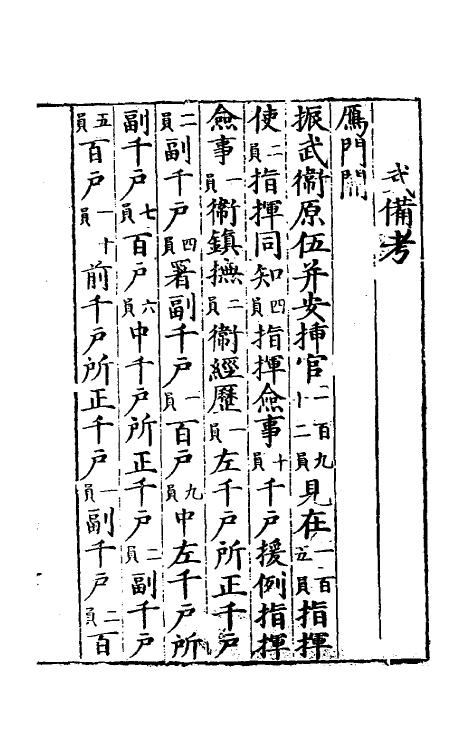 武備考
鴈門關
振武衛原伍并安揷官一百九十二員見在一百五員指揮
使二員指揮同知四員指揮僉事十員千戶援例指揮
僉事一員衛鎮撫二員衛經歷一員左千戶所正千戶
二員副千戶四員署副千戶一員百戶九員中左千戶所
副千戶七員百戶六員中千戶所正千戶二員副千戶
五員百戶一十員前千戶所正千戶一員副千戶二員百